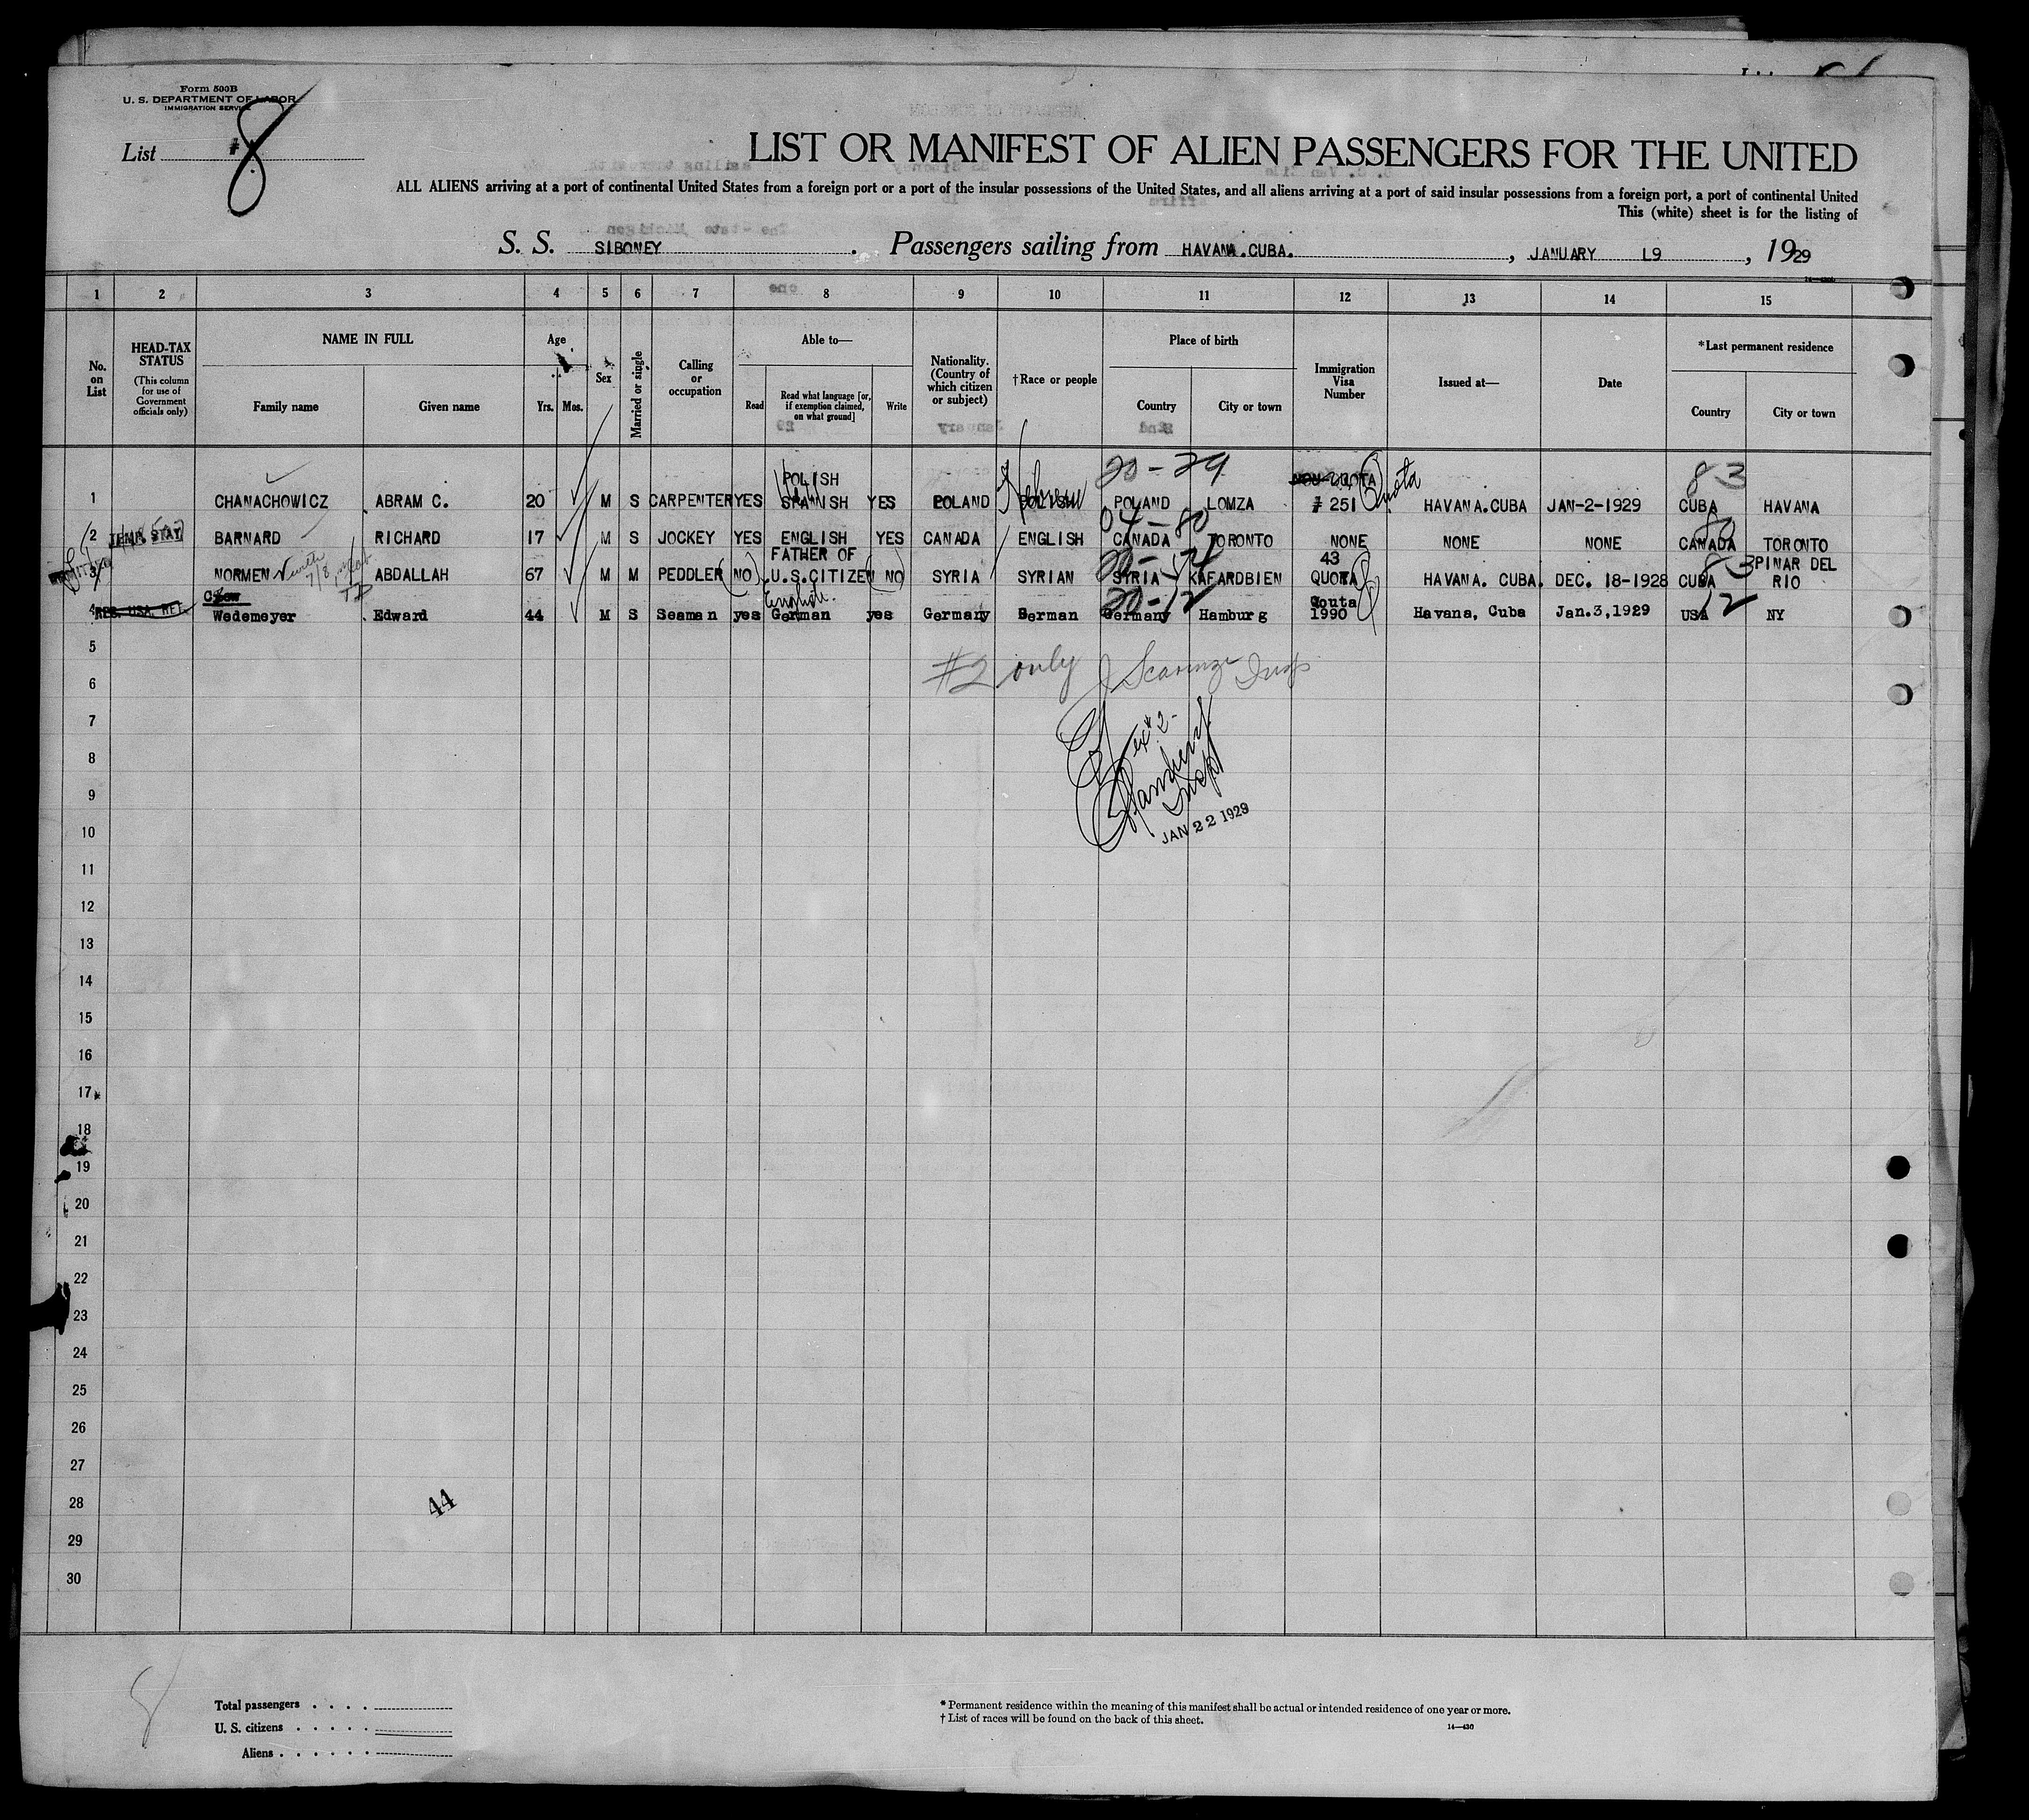 Form 500B
U. S. DEPARTMENT OF LABOR
IMMIGRATION SERVICE
List 8
LIST OR MANIFEST OF ALIEN PASSENGERS FOR THE UNITED
ALL ALIENS arriving at a port of continental United States from a foreign port or a port of the insular possessions of the United States, and all aliens arriving at a port of said insular possessions from a foreign port, a port of continental United
This (white) sheet is for the listing of
S. S. SIBONEY. Passengers sailing from HAVANA.CUBA. , JANUARY L9 , 1929
1 2 3 4 5 6 7 8 9 10 11 12 13 14 15
No. on List
HEAD-TAX STATUS (This column for use of Government officials only)
NAME IN FULL Family name Given name
Age Yrs. Mos.
Sex
Married or single
Calling or occupation
Able to— Read Read what language [or, if exemption claimed, on what ground] Write
Nationality. (Country of which citizen or subject)
†Race or people
Place of birth Country City or town
Immigration Visa Number
Issued at—
Date
*Last permanent residence Country City or town
20-29 83
POLISH NON-QUOTA Quota
1 CHANACHOWICZ ABRAM C. 20 M S CARPENTER YES SPANISH YES POLAND POLISH Hebrew POLAND LOMZA # 251 HAVANA.CUBA JAN-2-1929 CUBA HAVANA
04-80
2 TEMP. STAY BARNARD RICHARD 17 M S JOCKEY YES ENGLISH YES CANADA ENGLISH CANADA TORONTO NONE NONE NONE CANADA TORONTO
FATHER OF 43 83 PINAR DEL
3 NORMEN ABDALLAH 67 M M PEDDLER (NO) U.S.CITIZEN (NO) SYRIA SYRIAN SYRIA KAFARDBIEN QUOTA HAVANA. CUBA. DEC. 18-1928 CUBA RIO
English. 20-12 Qouta 12
4 Wedemeyer Edward 44 M S Seaman yes German yes Germany German Germany Hamburg 1990 Havana, Cuba Jan.3,1929 USA NY
5
#2 only
6
7
8
9
10
JAN 22 1929
11
12
13
14
15
16
17
18
19
20
21
22
23
24
25
26
27
28
44
29
30
8
Total passengers . . . .
U. S. citizens . . . . .
Aliens . . . . . .
* Permanent residence within the meaning of this manifest shall be actual or intended residence of one year or more.
† List of races will be found on the back of this sheet.
14—430